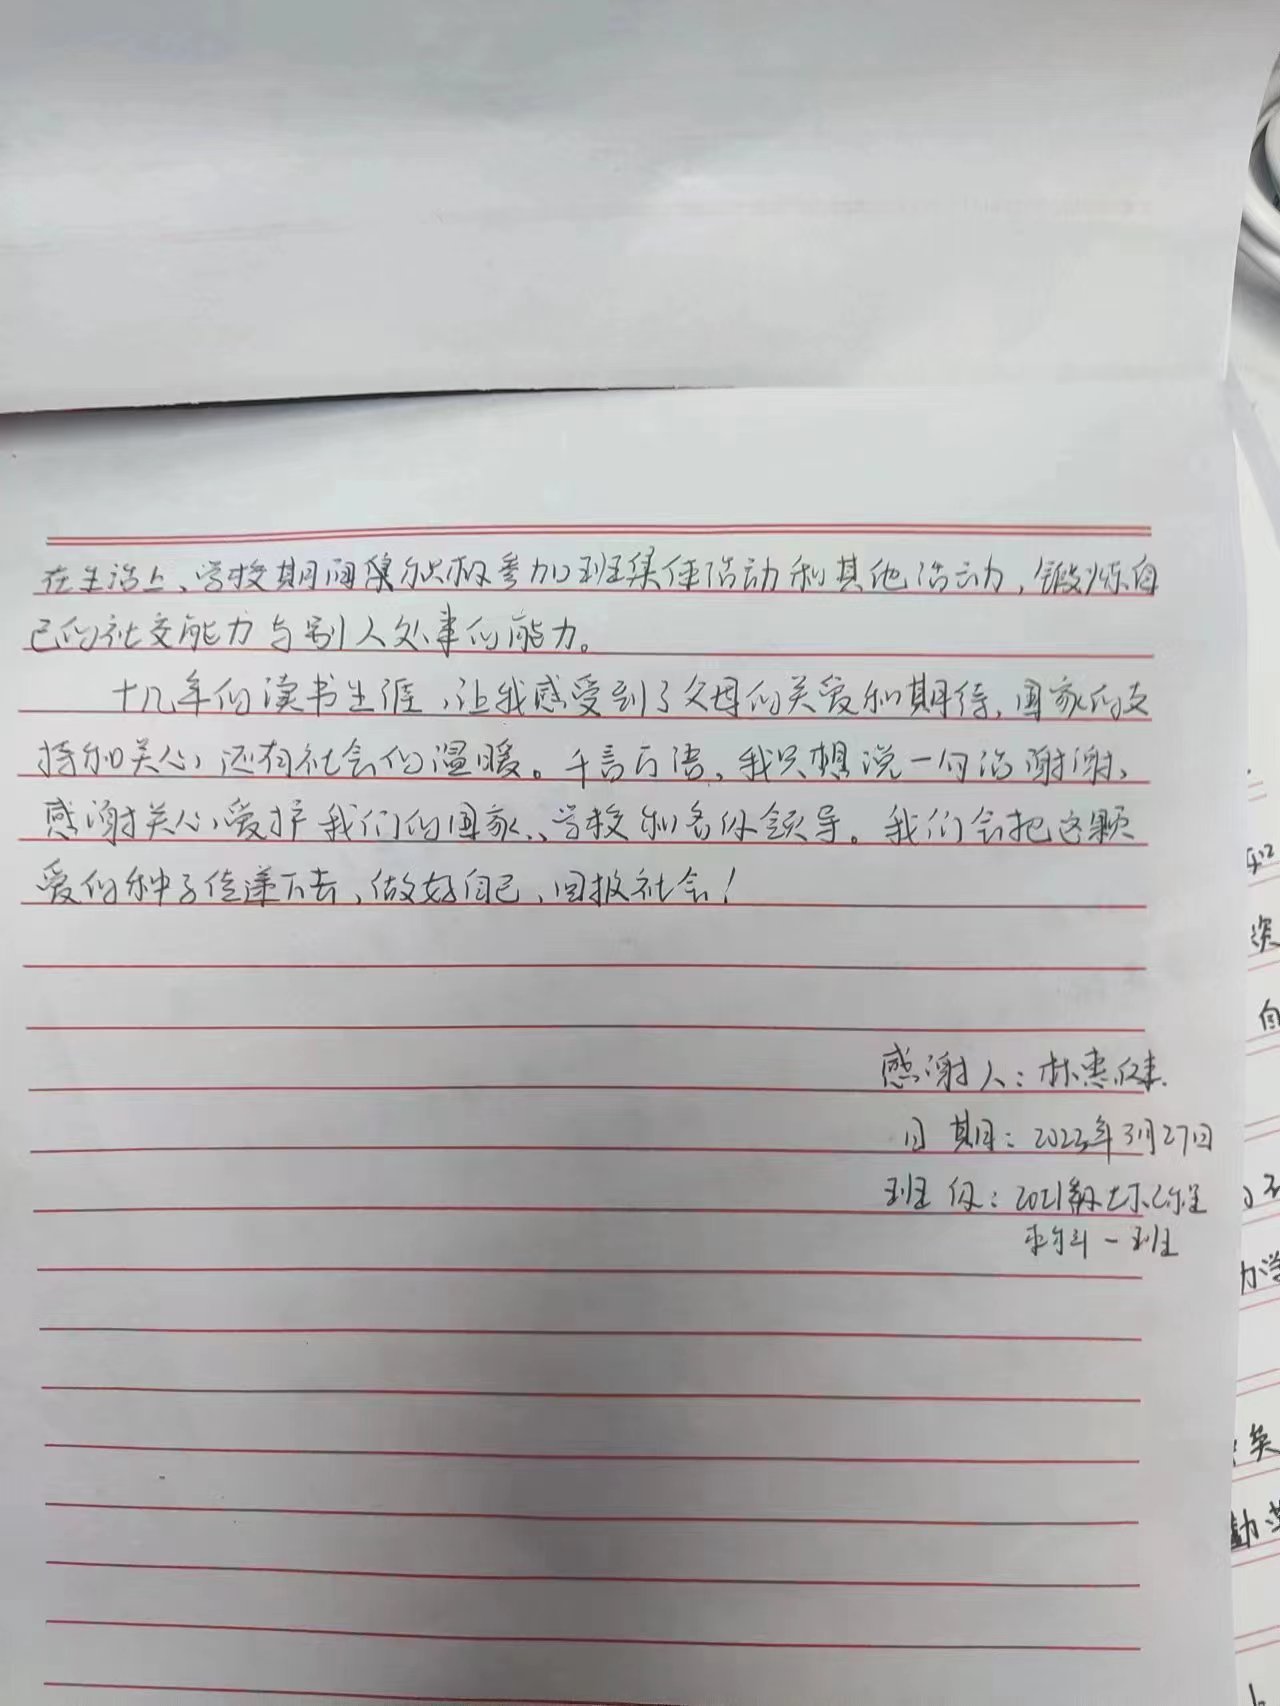 在生活上、学校期间积极参加班集体活动和其他活动，锻炼自
己的社交能力与别人处事的能力。
十几年的读书生涯，让我感受到了父母的关爱和期待，国家的支
持和关心，还有社会的温暖。千言万语，我只想说一句话谢谢，
感谢关心，爱护我们的国家、学校和各位领导。我们会把这颗
爱的种子传递下去，做好自己，回报社会！
感谢人：林惠健
日期：2023年3月27日
班级：2021级
一班
深
自